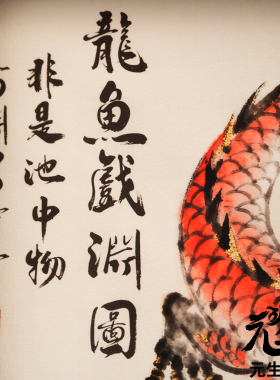 龍魚戲淵圖
非是池中物
元生